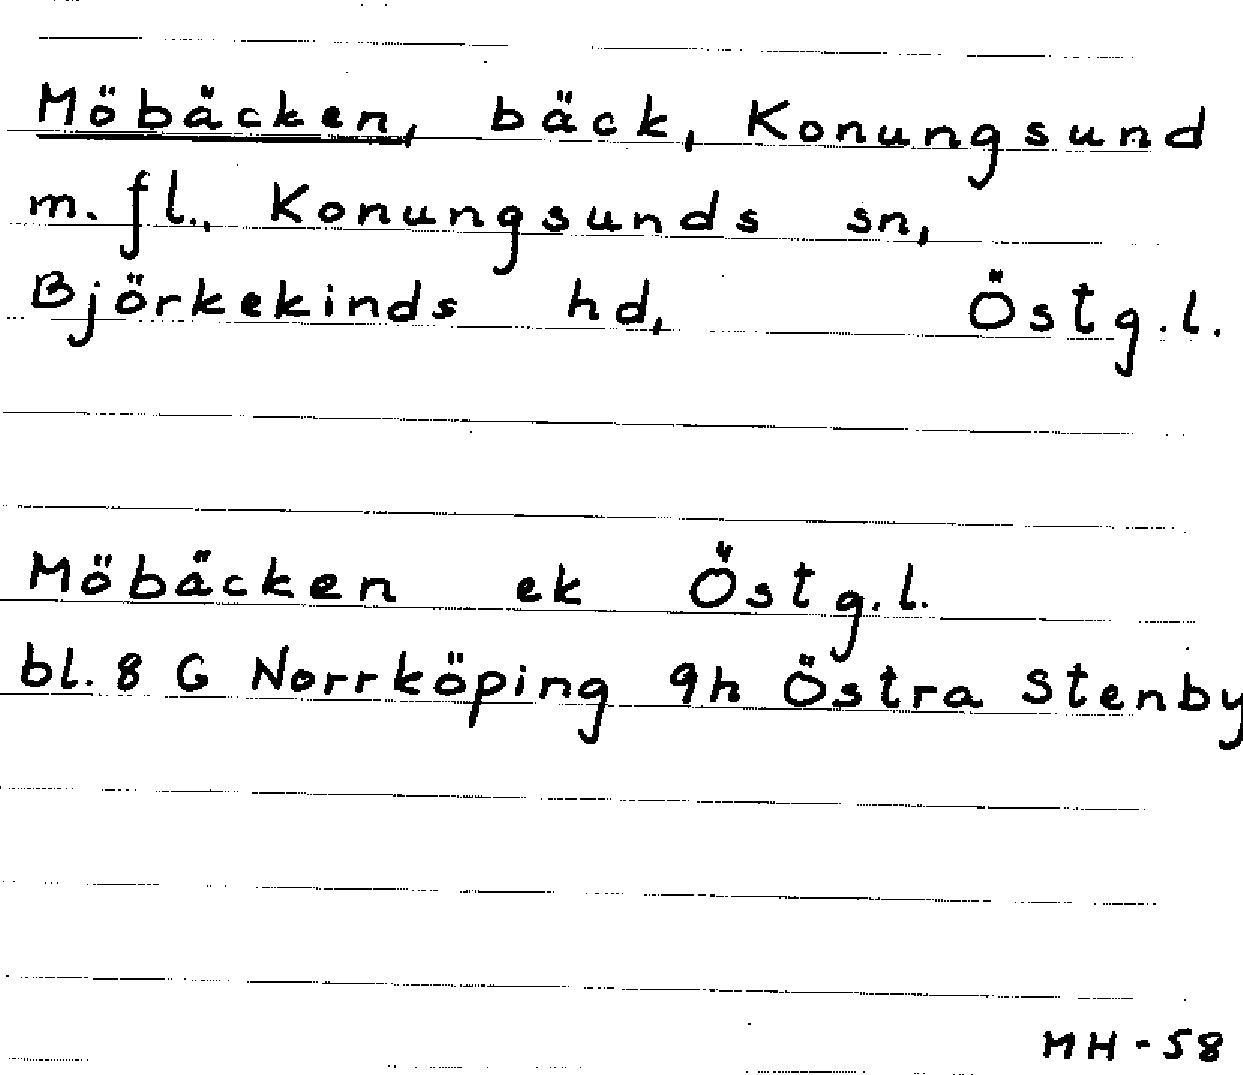 Möbäcken, bäck, Konungsund
m. fl., Konungsunds sn,
Björkekinds hd, Östg.l.
Möbäcken ek Östg.l.
bl. 8 G Norrköping 9h Östra Stenby
MH-58